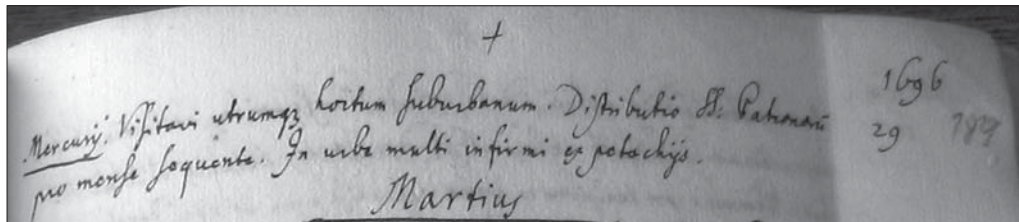 +
1696
Mercurij. Visitavi utrumqꝫ hortum suburbanum. Distributio SS. Patronorū 29 789
pro mense sequente. In urbe multi infirmi ex petechijs.
Martius